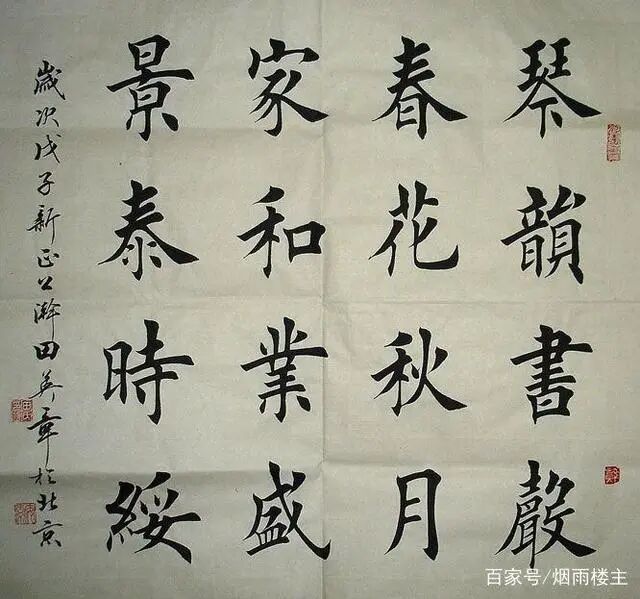 琴韻書聲
春花秋月
家和業盛
景泰時綏
歲次戊子新正公瀚田英章於北京
百家号/烟雨楼主